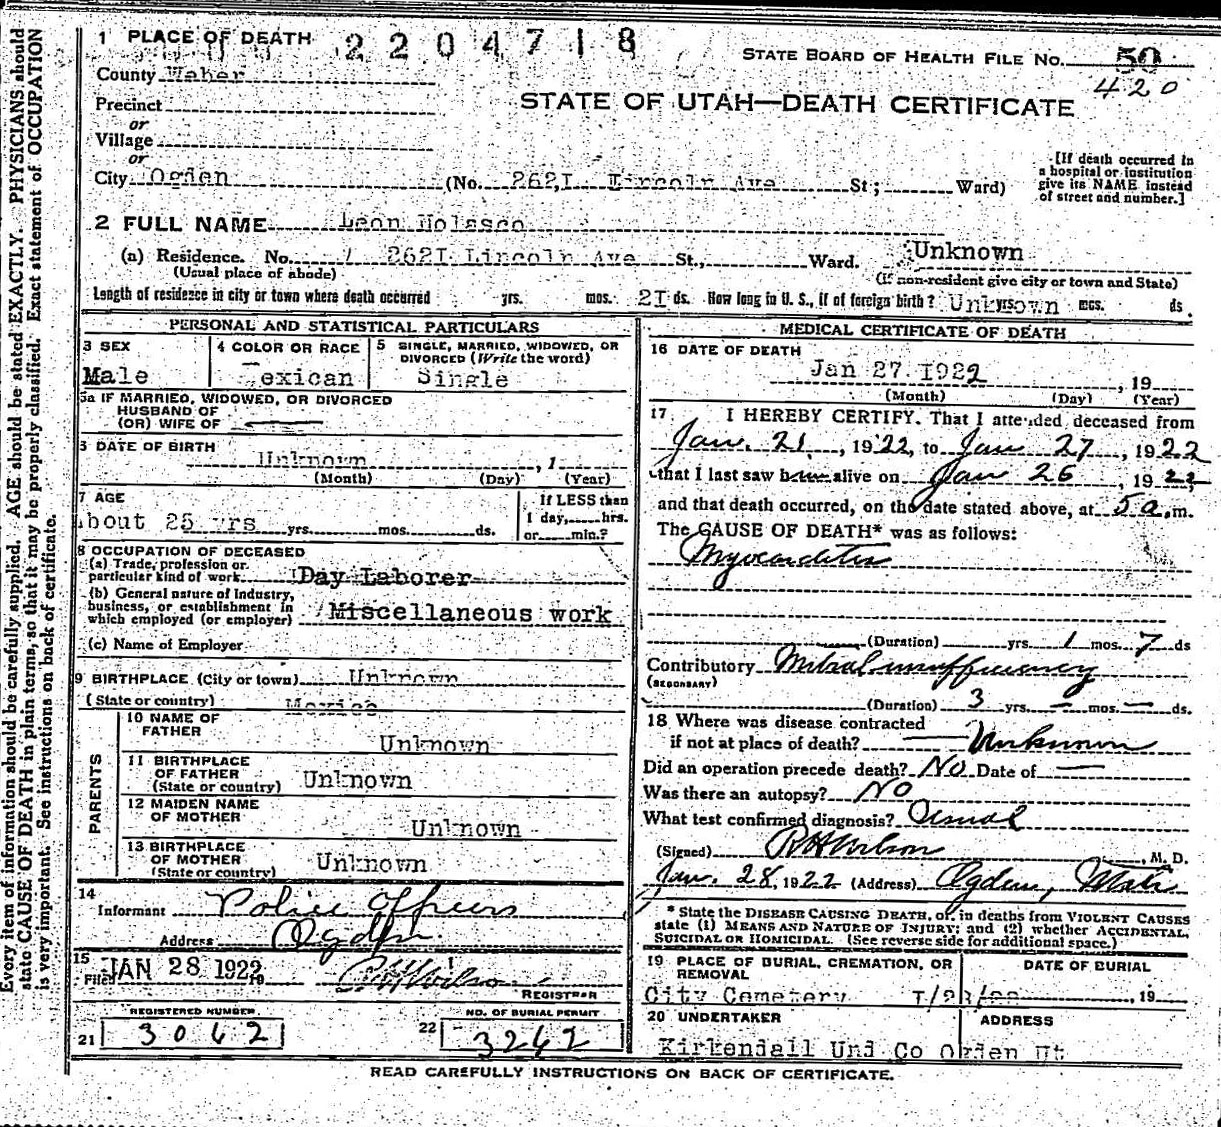 Every item of information should be carefully supplied. AGE should be stated EXACTLY. PHYSICIANS should
state CAUSE OF DEATH in plain terms, so that it may be properly classified. Exact statement of OCCUPATION
is very important. See instructions on back of certificate.
1 PLACE OF DEATH 2204718
STATE BOARD OF HEALTH FILE No. 50
420
County Weber
STATE OF UTAH—DEATH CERTIFICATE
Precinct
or
Village
or
City Ogden (No. 2621 Lincoln Ave St; Ward)
[If death occurred in
a hospital or institution
give its NAME instead
of street and number.]
2 FULL NAME Leon Nolasco
(a) Residence. No. 2621 Lincoln Ave St., Ward. Unknown
(Usual place of abode) (If non-resident give city or town and State)
Length of residence in city or town where death occurred yrs. mos. 21 ds. How long in U. S., if of foreign birth? Unknown yrs. mos. ds.
PERSONAL AND STATISTICAL PARTICULARS
3 SEX
Male
4 COLOR OR RACE
Mexican
5 SINGLE, MARRIED, WIDOWED, OR
DIVORCED (Write the word)
Single
5a IF MARRIED, WIDOWED, OR DIVORCED
HUSBAND OF
(OR) WIFE OF
6 DATE OF BIRTH
Unknown , 1
(Month) (Day) (Year)
7 AGE
About 25 yrs yrs. mos. ds.
If LESS than
1 day, hrs.
or min.?
8 OCCUPATION OF DECEASED
(a) Trade, profession or
particular kind of work Day Laborer
(b) General nature of Industry,
business, or establishment in
which employed (or employer) Miscellaneous work
(c) Name of Employer
9 BIRTHPLACE (City or town) Unknown
(State or country) Mexico
PARENTS
10 NAME OF
FATHER Unknown
11 BIRTHPLACE
OF FATHER
(State or country) Unknown
12 MAIDEN NAME
OF MOTHER Unknown
13 BIRTHPLACE
OF MOTHER
(State or country) Unknown
14
Informant Police Officers
Address Ogden
15
Filed JAN 28 1922 19
Wilson
REGISTRAR
REGISTERED NUMBER
21 3042
NO. OF BURIAL PERMIT
22 3242
MEDICAL CERTIFICATE OF DEATH
16 DATE OF DEATH
Jan 27 1922 , 19
(Month) (Day) (Year)
17 I HEREBY CERTIFY. That I attended deceased from
Jan. 21, 1922, to Jan 27, 1922
that I last saw him alive on Jan 26, 1922,
and that death occurred, on the date stated above, at 5 a.m.
The CAUSE OF DEATH* was as follows:
Myocarditis
(Duration) yrs. 1 mos. 7 ds
Contributory Mitral insufficiency
(SECONDARY)
(Duration) 3 yrs. — mos. — ds.
18 Where was disease contracted
if not at place of death? Unknown
Did an operation precede death? NO Date of —
Was there an autopsy? NO
What test confirmed diagnosis? Usual
(Signed) R H Wilson, M. D.
Jan. 28, 1922 (Address) Ogden, Utah
* State the DISEASE CAUSING DEATH, or, in deaths from VIOLENT CAUSES
state (1) MEANS AND NATURE OF INJURY; and (2) whether ACCIDENTAL,
SUICIDAL OR HOMICIDAL. (See reverse side for additional space.)
19 PLACE OF BURIAL, CREMATION, OR
REMOVAL
City Cemetery
DATE OF BURIAL
, 19
20 UNDERTAKER
ADDRESS
Kirkendall Und Co Ogden Ut
READ CAREFULLY INSTRUCTIONS ON BACK OF CERTIFICATE.